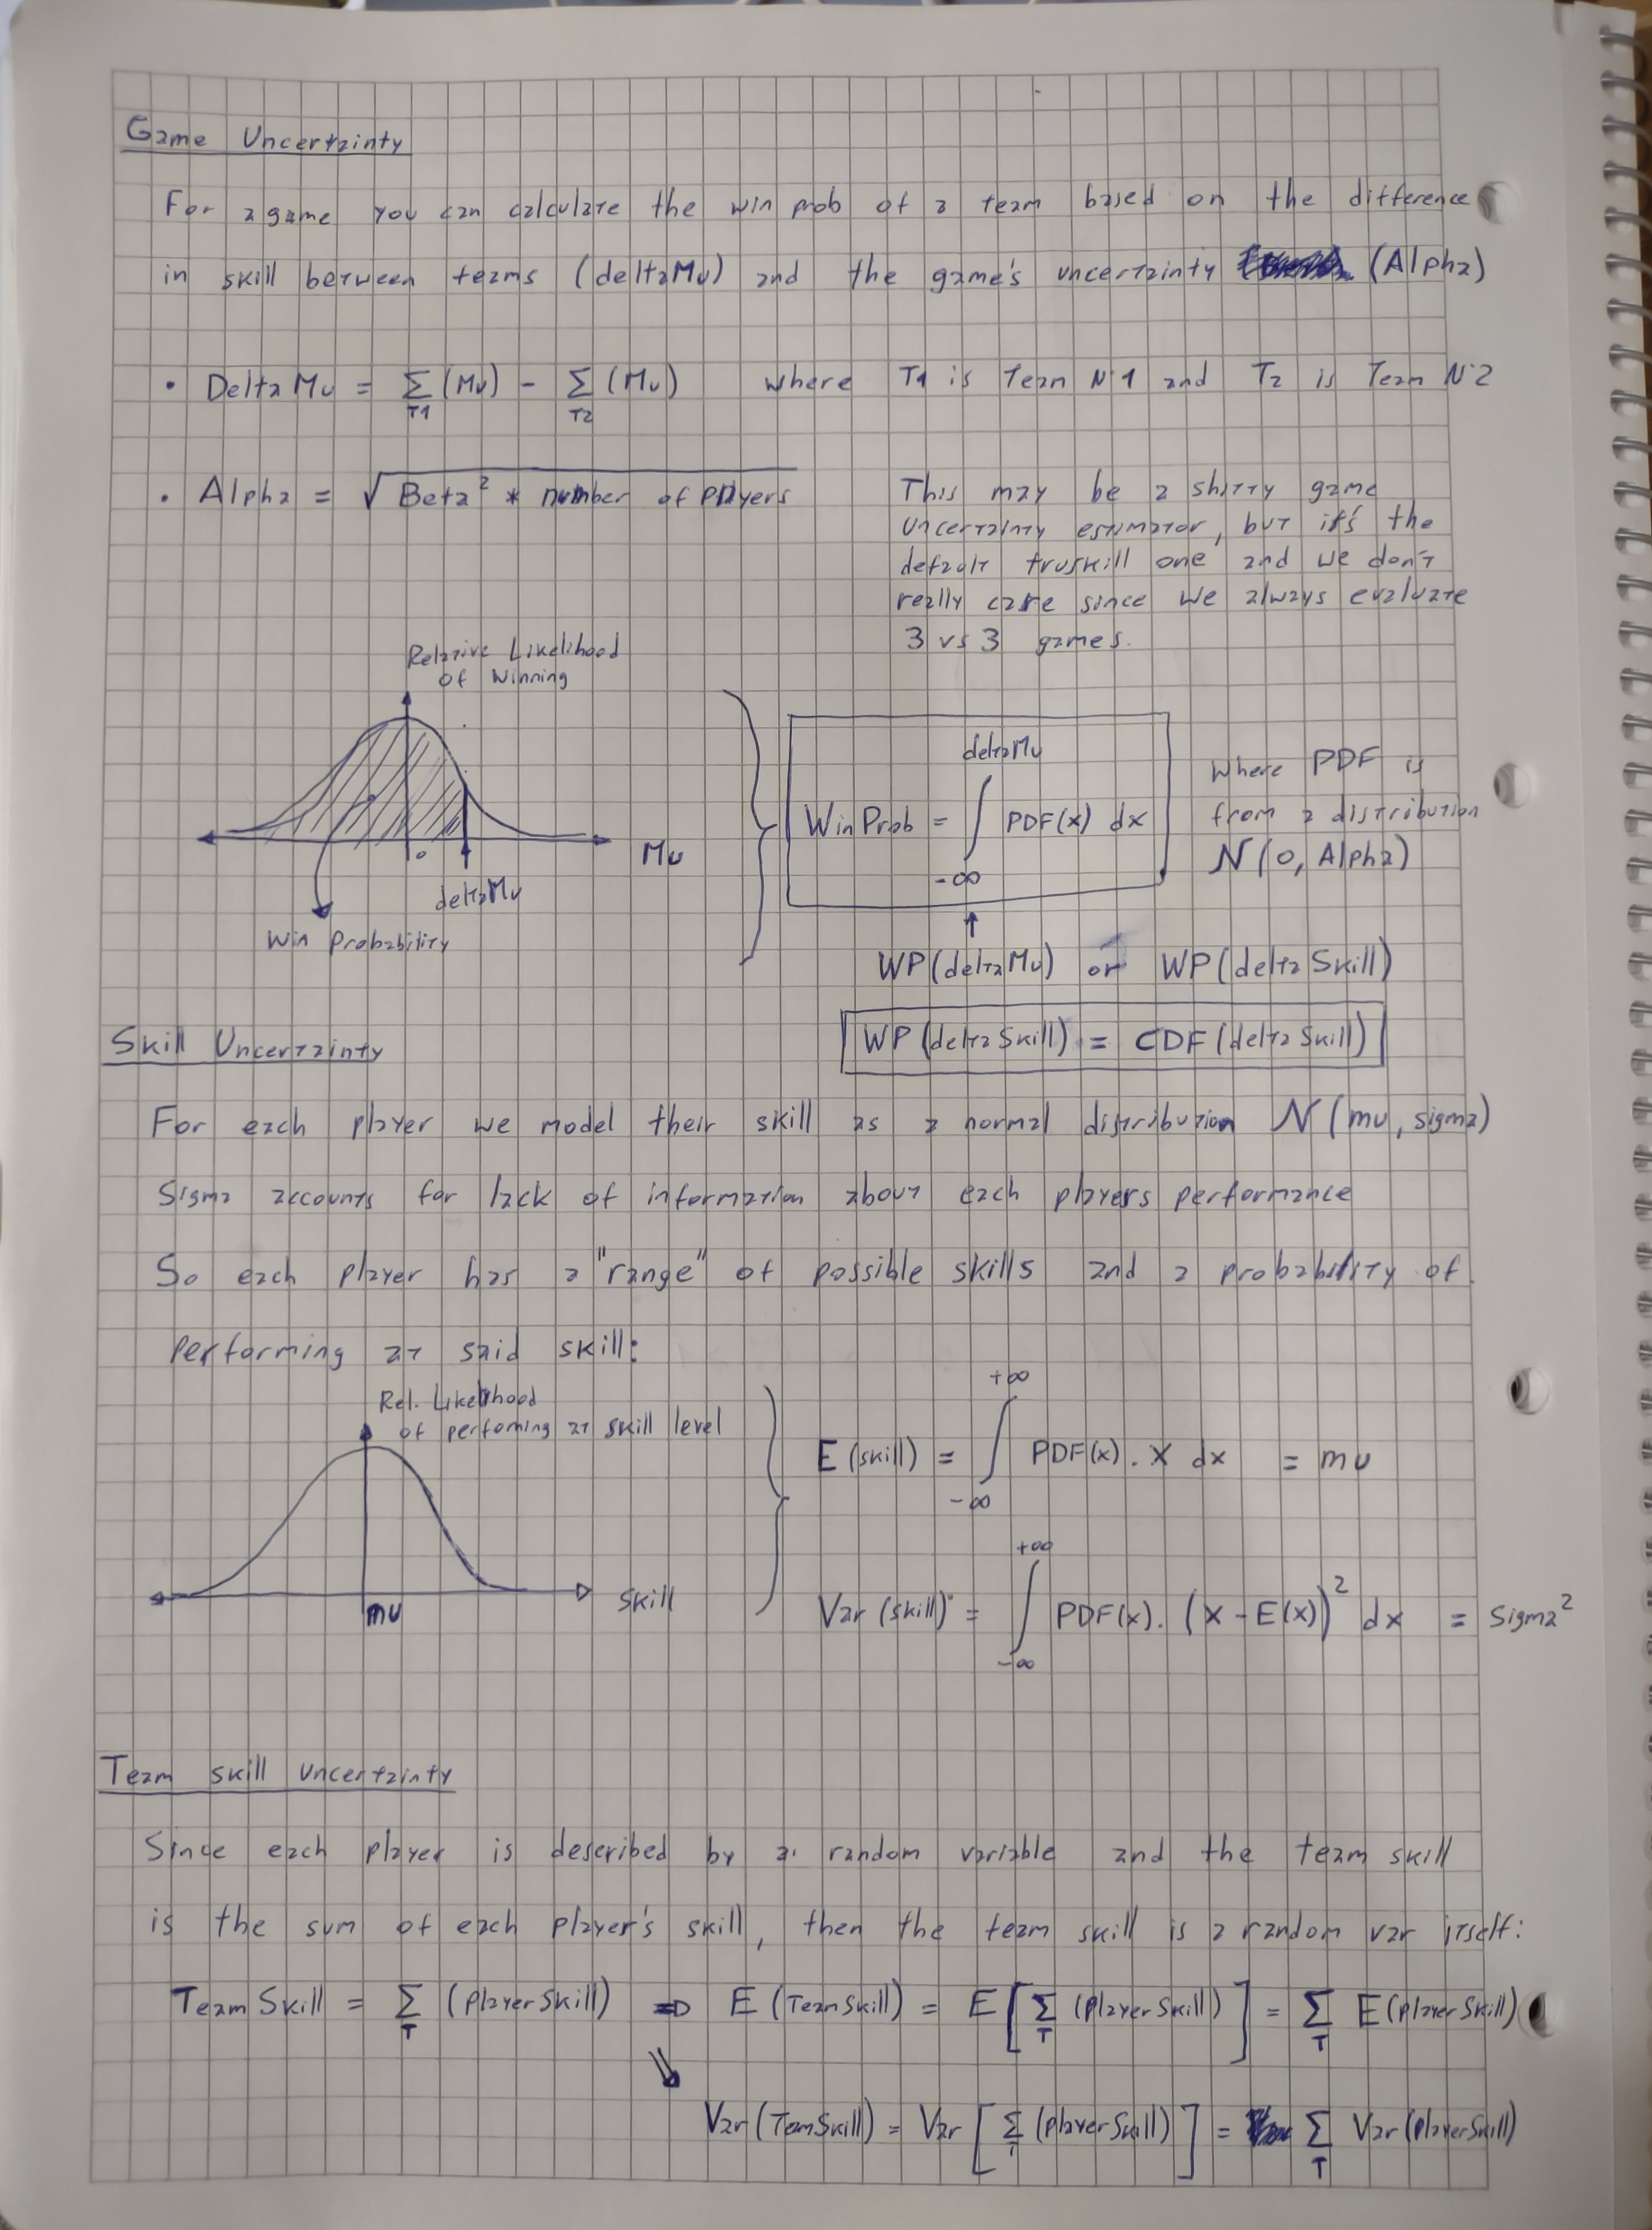 Game Uncertainty
For a game you can calculate the win prob of a team based on the difference
in skill between teams (deltaMu) and the game's uncertainty (Alpha)
• Delta Mu = Σ (Mu) - Σ (Mu) where T1 is Team N°1 and T2 is Team N°2
T1 T2
• Alpha = √ Beta² * number of players
This may be a shitty game
uncertainty estimator, but it's the
default truskill one and we don't
really care since we always evaluate
3 vs 3 games.
Relative Likelihood
of Winning
Mu
0
deltaMu
Win Probability
deltaMu
WinProb = ∫ PDF(x) dx
-∞
where PDF is
from a distribution
N(0, Alpha)
↑
WP(deltaMu) or WP(deltaSkill)
WP(deltaSkill) = CDF(deltaSkill)
Skill Uncertainty
For each player we model their skill as a normal distribution N(mu, sigma)
Sigma accounts for lack of information about each players performance
So each player has a "range" of possible skills and a probability of
performing at said skill:
Rel. Likelihood
of perfoming at skill level
mu
Skill
+∞
E(skill) = ∫ PDF(x) . x dx = mu
-∞
+∞
Var(skill) = ∫ PDF(x). (x - E(x))² dx = Sigma²
-∞
Team skill uncertainty
Since each player is described by a random variable and the team skill
is the sum of each player's skill, then the team skill is a random var itself:
TeamSkill = Σ (playerSkill) ⇒ E(TeamSkill) = E[Σ (playerSkill)] = Σ E(playerSkill)
T T T
⇘
Var(TemSkill) = Var[Σ (playerSkill)] = Σ Var(playerSkill)
T T